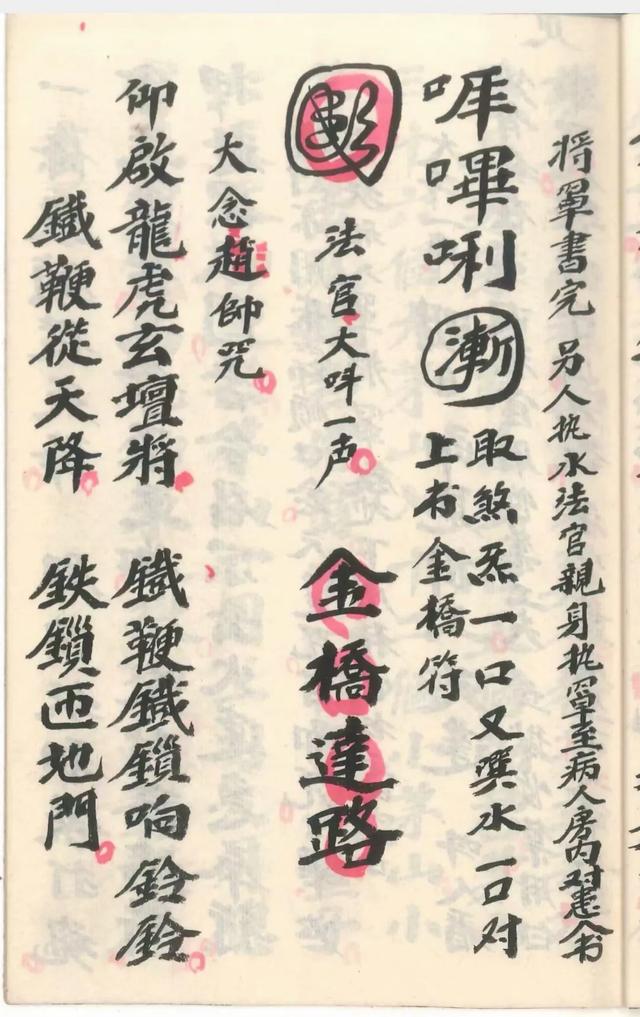 將罩書完另人执水法官親身执罩至病人房内对患人书
㖀嗶唎
漸
取煞炁一口又噀水一口对
上书金橋符
法官大呌一声
金橋達路
大念趙帥咒
仰啟龍虎玄壇將 鐵鞭鐵鎖响鈴鈴
鐵鞭從天降 鉄鎖迊地門